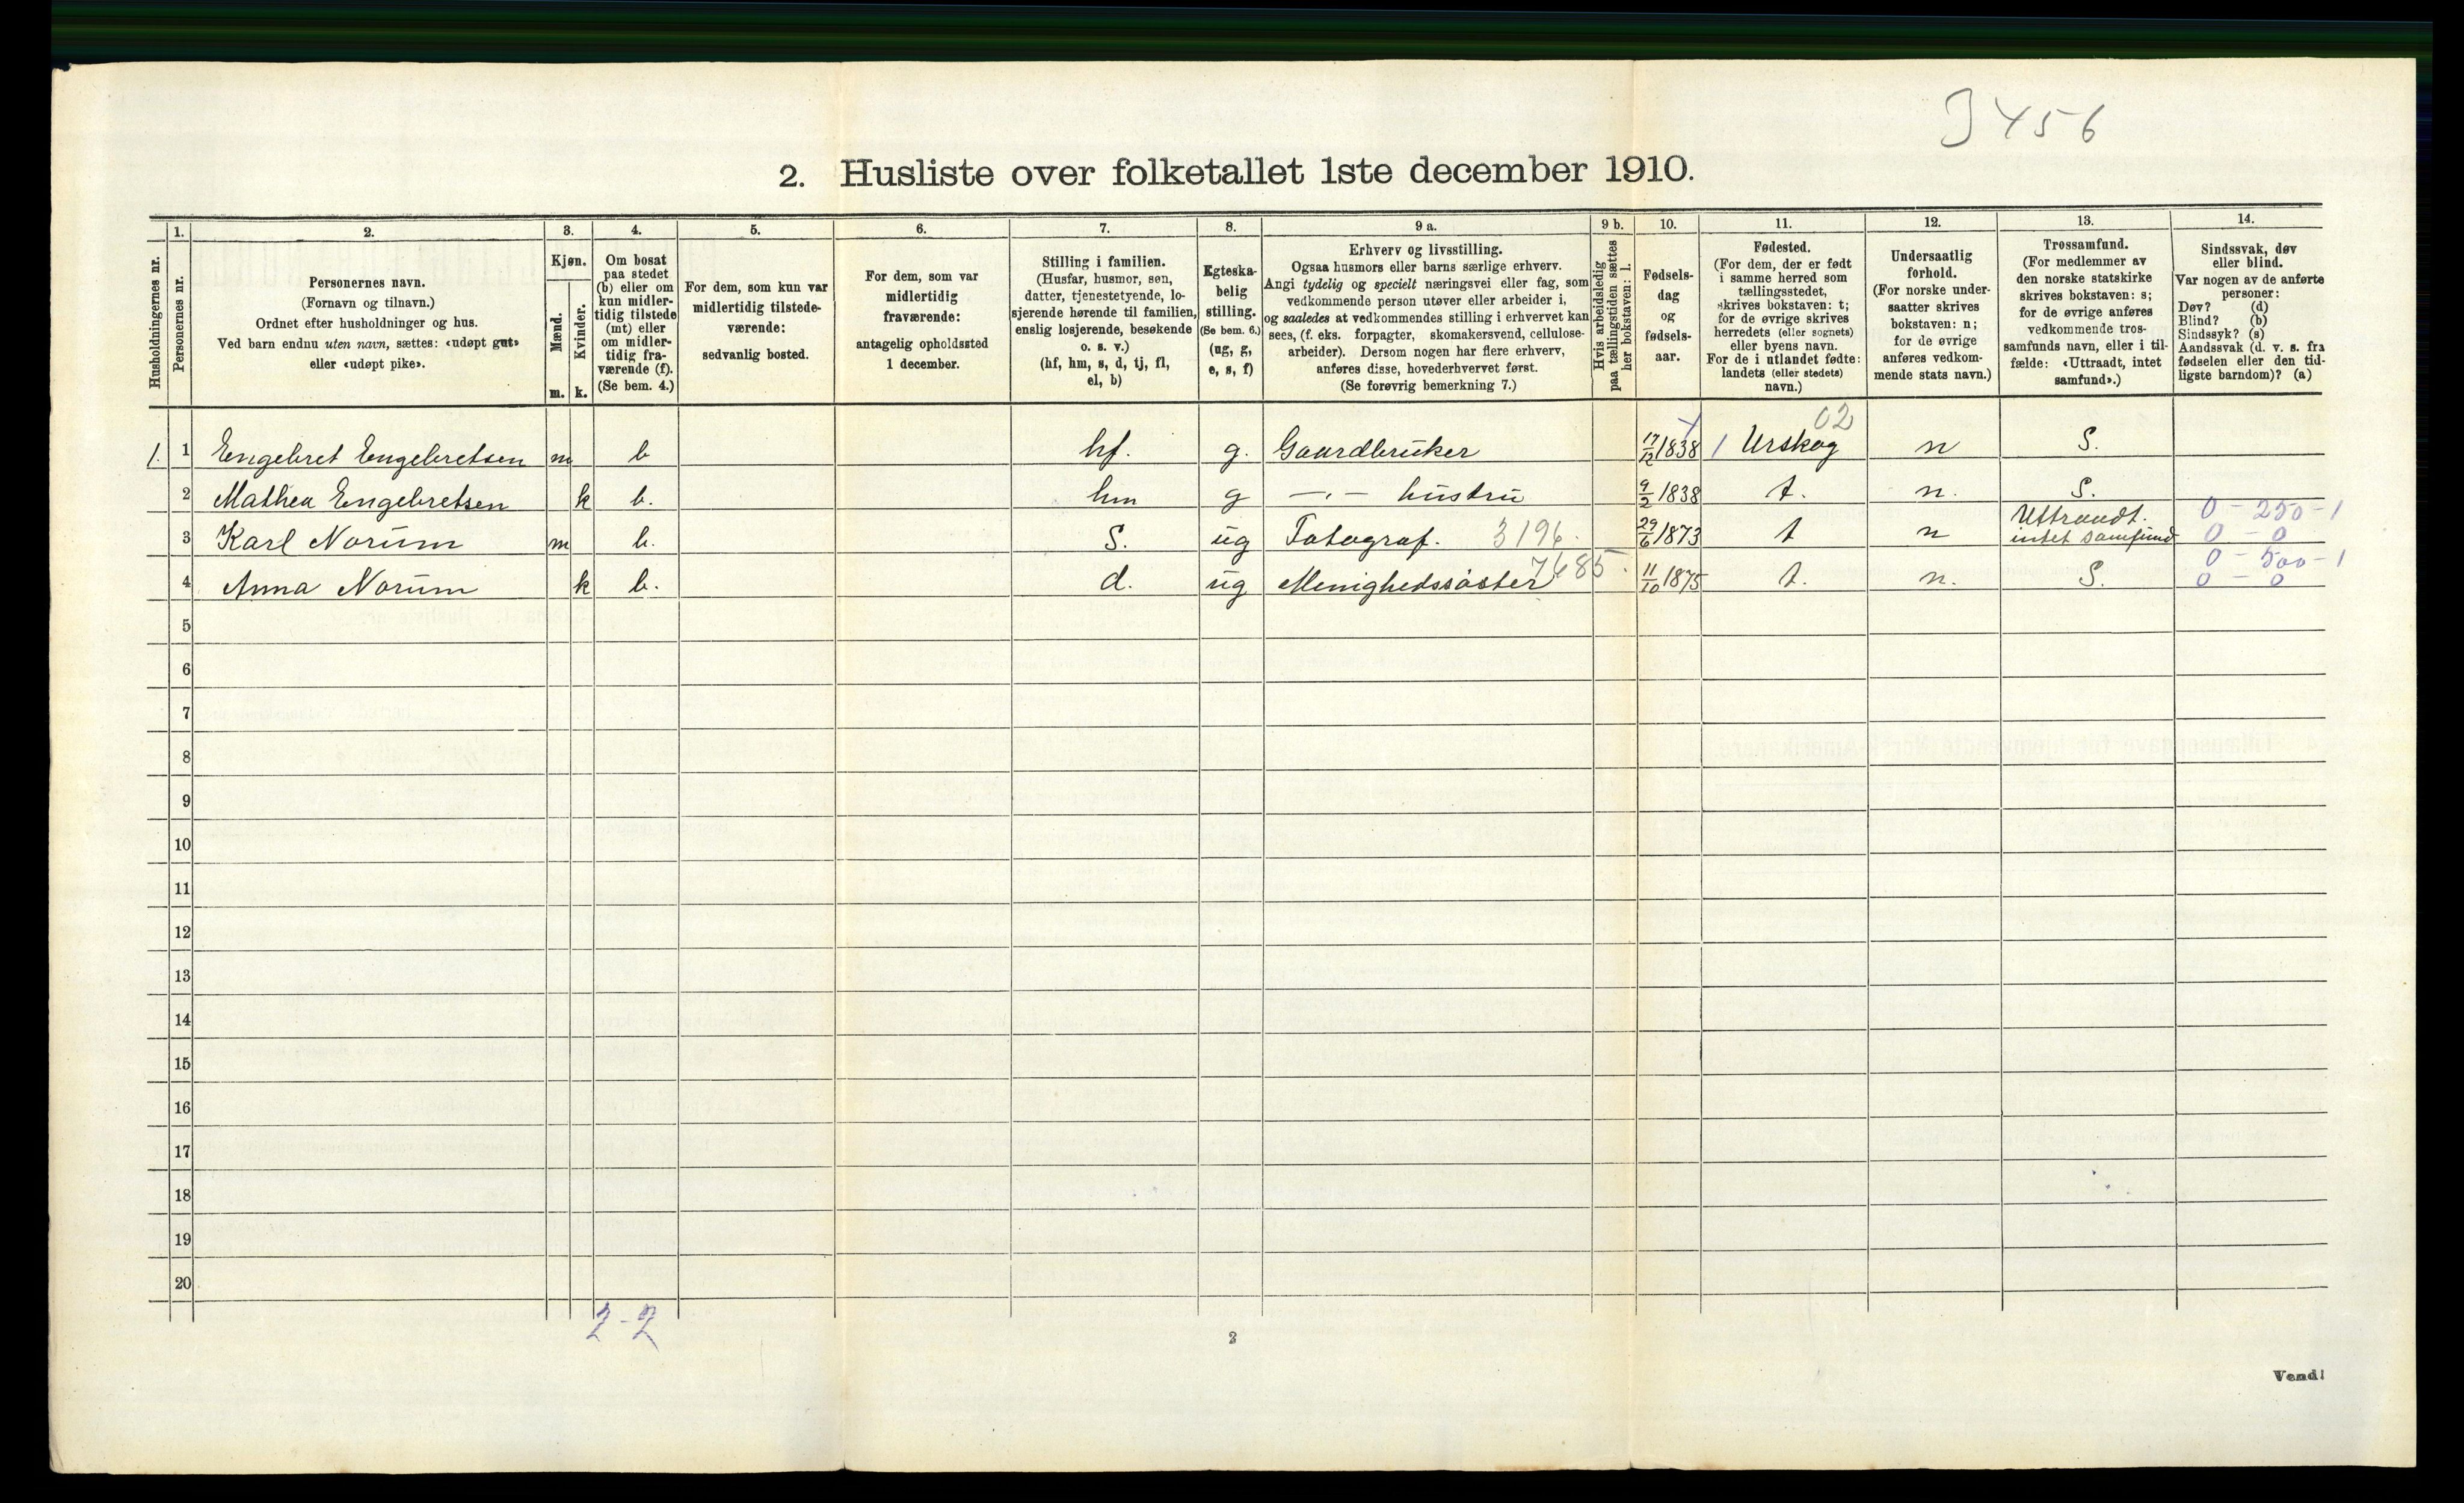 3456
2. Husliste over folketallet 1ste december 1910.
Husholdningernes nr.
1.
Personernes nr.
2.
Personernes navn.
(Fornavn og tilnavn.)
Ordnet efter husholdninger og hus.
Ved barn endnu uten navn, sættes: «udøpt gut»
eller «udøpt pike».
3.
Kjøn.
Mænd.
Kvinder.
m. k.
4.
Om bosat
paa stedet
(b) eller om
kun midler-
tidig tilstede
(mt) eller
om midler-
tidig fra-
værende (f).
(Se bem. 4.)
5.
For dem, som kun var
midlertidig tilstede-
værende:
sedvanlig bosted.
6.
For dem, som var
midlertidig
fraværende:
antagelig opholdssted
1 december.
7.
Stilling i familien.
(Husfar, husmor, søn,
datter, tjenestetyende, lo-
sjerende hørende til familien,
enslig losjerende, besøkende
o. s. v.)
(hf, hm, s, d, tj, fl,
el, b)
8.
Egteska-
belig
stilling.
(Se bem. 6.)
(ug, g,
e, s, f)
9 a.
Erhverv og livsstilling.
Ogsaa husmors eller barns særlige erhverv.
Angi tydelig og specielt næringsvei eller fag, som
vedkommende person utøver eller arbeider i,
og saaledes at vedkommendes stilling i erhvervet kan
sees, (f. eks. forpagter, skomakersvend, cellulose-
arbeider). Dersom nogen har flere erhverv,
anføres disse, hovederhvervet først.
(Se forøvrig bemerkning 7.)
9 b.
Hvis arbeidsledig
paa tællingstiden sættes
her bokstaven: l.
10.
Fødsels-
dag
og
fødsels-
aar.
11.
Fødested.
(For dem, der er født
i samme herred som
tællingsstedet,
skrives bokstaven: t;
for de øvrige skrives
herredets (eller sognets)
eller byens navn.
For de i utlandet fødte:
landets (eller stedets)
navn.)
12.
Undersaatlig
forhold.
(For norske under-
saatter skrives
bokstaven: n;
for de øvrige
anføres vedkom-
mende stats navn.)
13.
Trossamfund.
(For medlemmer av
den norske statskirke
skrives bokstaven: s;
for de øvrige anføres
vedkommende tros-
samfunds navn, eller i til-
fælde: «Uttraadt, intet
samfund».)
14.
Sindssvak, døv
eller blind.
Var nogen av de anførte
personer:
Døv? (d)
Blind? (b)
Sindssyk? (s)
Aandssvak (d. v. s. fra
fødselen eller den tid-
ligste barndom)? (a)
02
1. 1 Engebret Engebretsen m b hf. g. Gaardbruker 17/12 1838 1 Urskog n S.
2 Mathea Engebretsen k b. hm g —〃— hustru 9/2 1838 t. n. S.
3 Karl Norum m b. S. ug Fotograf. 3196. 29/6 1873 t n Uttraadt. intet samfund 0 - 250 - 1 0 - 0
4 Anna Norum k b. d. ug Menighedssøster 7685. 11/10 1875 t. n. S. 0 - 500 - 1 0 - 0
5
6
7
8
9
10
11
12
13
14
15
16
17
18
19
20
2-2
2
Vend!